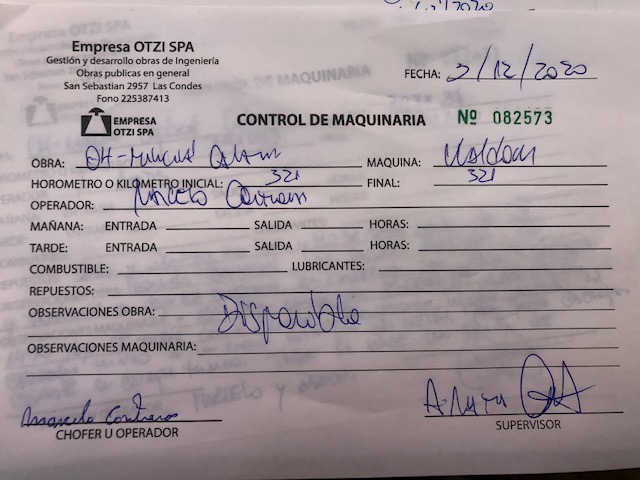 Empresa OTZI SPA
Gestión y desarrollo obras de Ingeniería
Obras publicas en general
San Sebastian 2957 Las Condes
Fono 225387413
FECHA: 2/12/2020
EMPRESA
OTZI SPA
CONTROL DE MAQUINARIA Nº 082573
OBRA: MAQUINA:
HOROMETRO O KILOMETRO INICIAL: 321 FINAL: 321
OPERADOR:
MAÑANA: ENTRADA SALIDA HORAS:
TARDE: ENTRADA SALIDA HORAS:
COMBUSTIBLE: LUBRICANTES:
REPUESTOS:
OBSERVACIONES OBRA: Disponible
OBSERVACIONES MAQUINARIA:
CHOFER U OPERADOR
SUPERVISOR